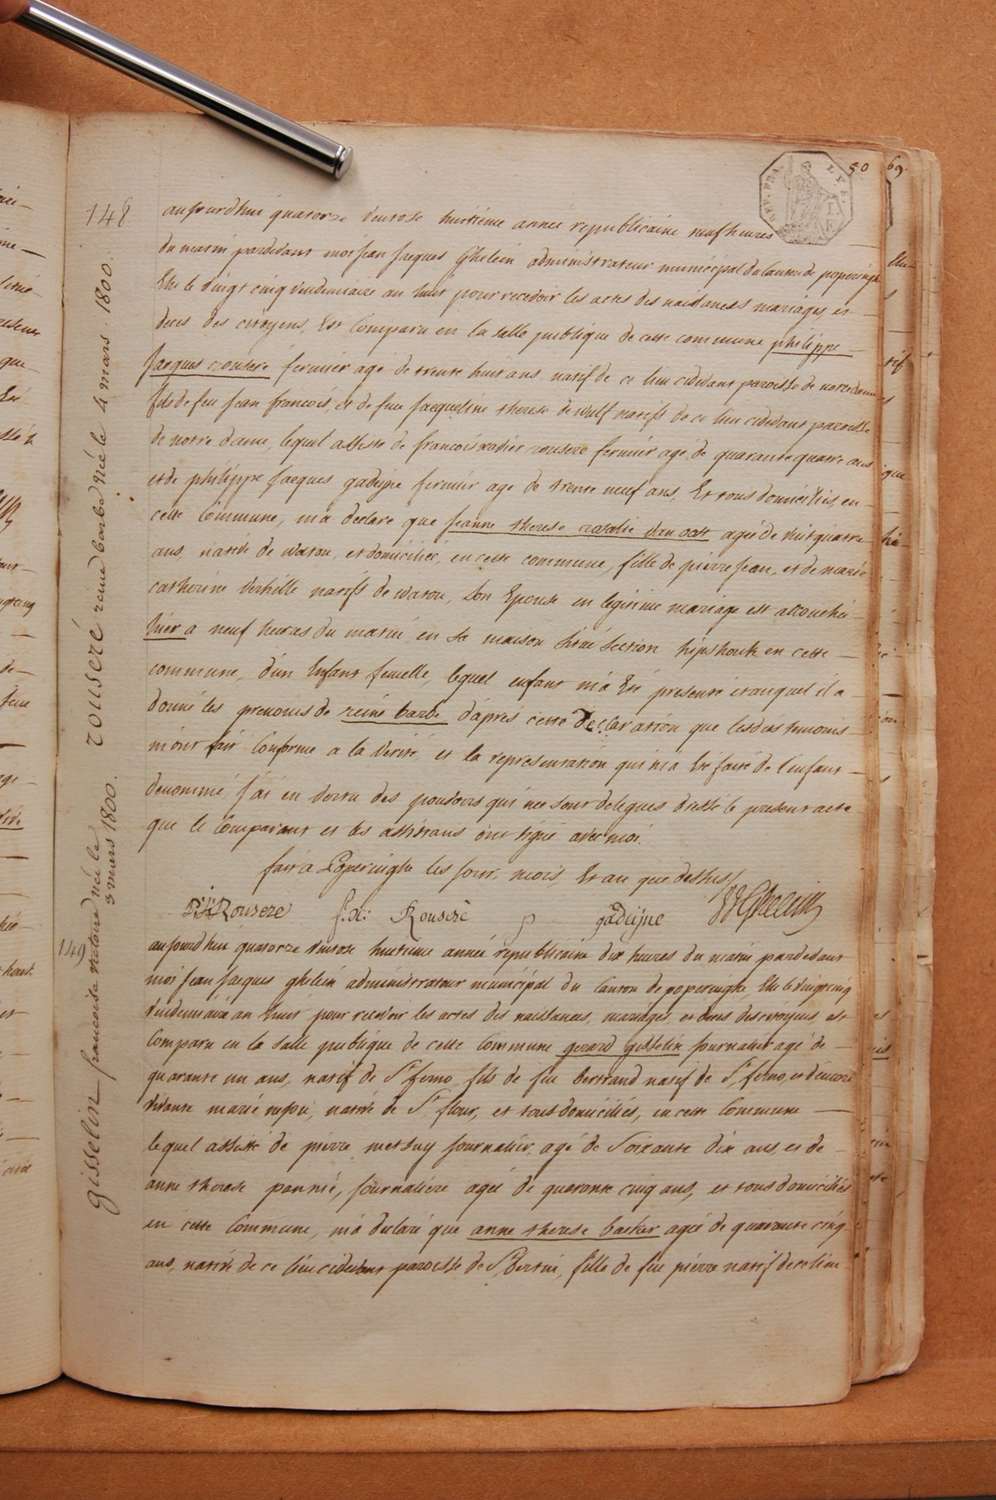 50 69.
148
aujourdhui quatorze ventose huitieme annee republicaine neuf heures
du matin pardevant moi jean jaques Ghelein administrateur municipal du canton de poperinghe
Elu le vingt cinq vendemiaire an huit pour recevoir les actes des naissances mariages et
deces des citoyens, Est comparu en la salle publique de cette commune philippe
jacques rousere fermier agé de trente huit ans natif de ce lieu cidevant paroisse de notre dame
fils de feu jean francois, et de feue jacqueline therese de wulf natifs de ce lieu cidevant paroisse
de notre dame, lequel assisté de francois xavier rousere fermier agé de quarante quatre ans
et de philippe jacques gadeyne fermier agé de trente neuf ans, Et tous domiciliés en
cette commune, m'a declaré que jeanne therese rosalie van oost agée de vint quatre
ans, native de watou, et domiciliée, en cette commune, fille de pierre jean, et de marie
catherine verhille natifs de watou, son Epouse en legitime mariage est accouchée
hier a neuf heures du matin en sa maison situé section hipshouk en cette
commune, d'un Enfant femelle, lequel enfant m'a Eté presenté et auquel il a
donné les prenoms de reine barbe d'après cette declaration que lesdits temoins
m'ont fait conforme a la verité et la representation qui m'a Eté faite de l'enfant
denommé j'ai en vertu des pouvoirs qui me sont delegués dressé le present acte
que le comparant et les assistans ont signé avec moi.
fait a Poperinghe les jour, mois, Et an que dessus
P:J: Rousere f: x: Rouserè p gadeyne JJGhelein
rouseré reine barbe née le 4 mars . 1800.
149
aujourdhui quatorze ventose huitieme année republicaine dix heures du matin pardevant
moi jean jaques ghelein administrateur municipal du canton de poperinghe Elu le vingt cinq
vendemiaire an huit pour recevoir les actes des naissances, mariages, et deces des citoyens est
comparu en la salle publique de cette commune gerard gisselin journalier agé de
quarante un ans, natif de S.t fermo fils de feu bertrand natif de S.t fermo, et d'encore
vivante marie rupin, native de S.t flour, et tous domiciliés, en cette commune
lequel assisté de pierre metsuy journalier, agé de soixante dix ans, et de
anne therese pannié, journaliere agée de quarante cinq ans, et tous domiciliés
en cette commune, m'a declaré que anne therese backer agée de quarante cinq
ans, native de ce lieu cidevant paroisse de S.t Bertin, fille de feu pierre natif de ce lieu
gisselin francoise victoire née le
3 mars 1800.